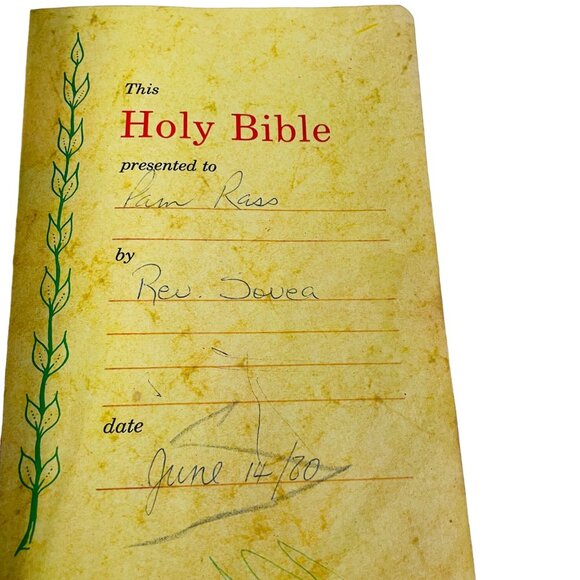 This
Holy Bible
presented to
Pam Rass
by
Rev. Tovea
date
June 14/80